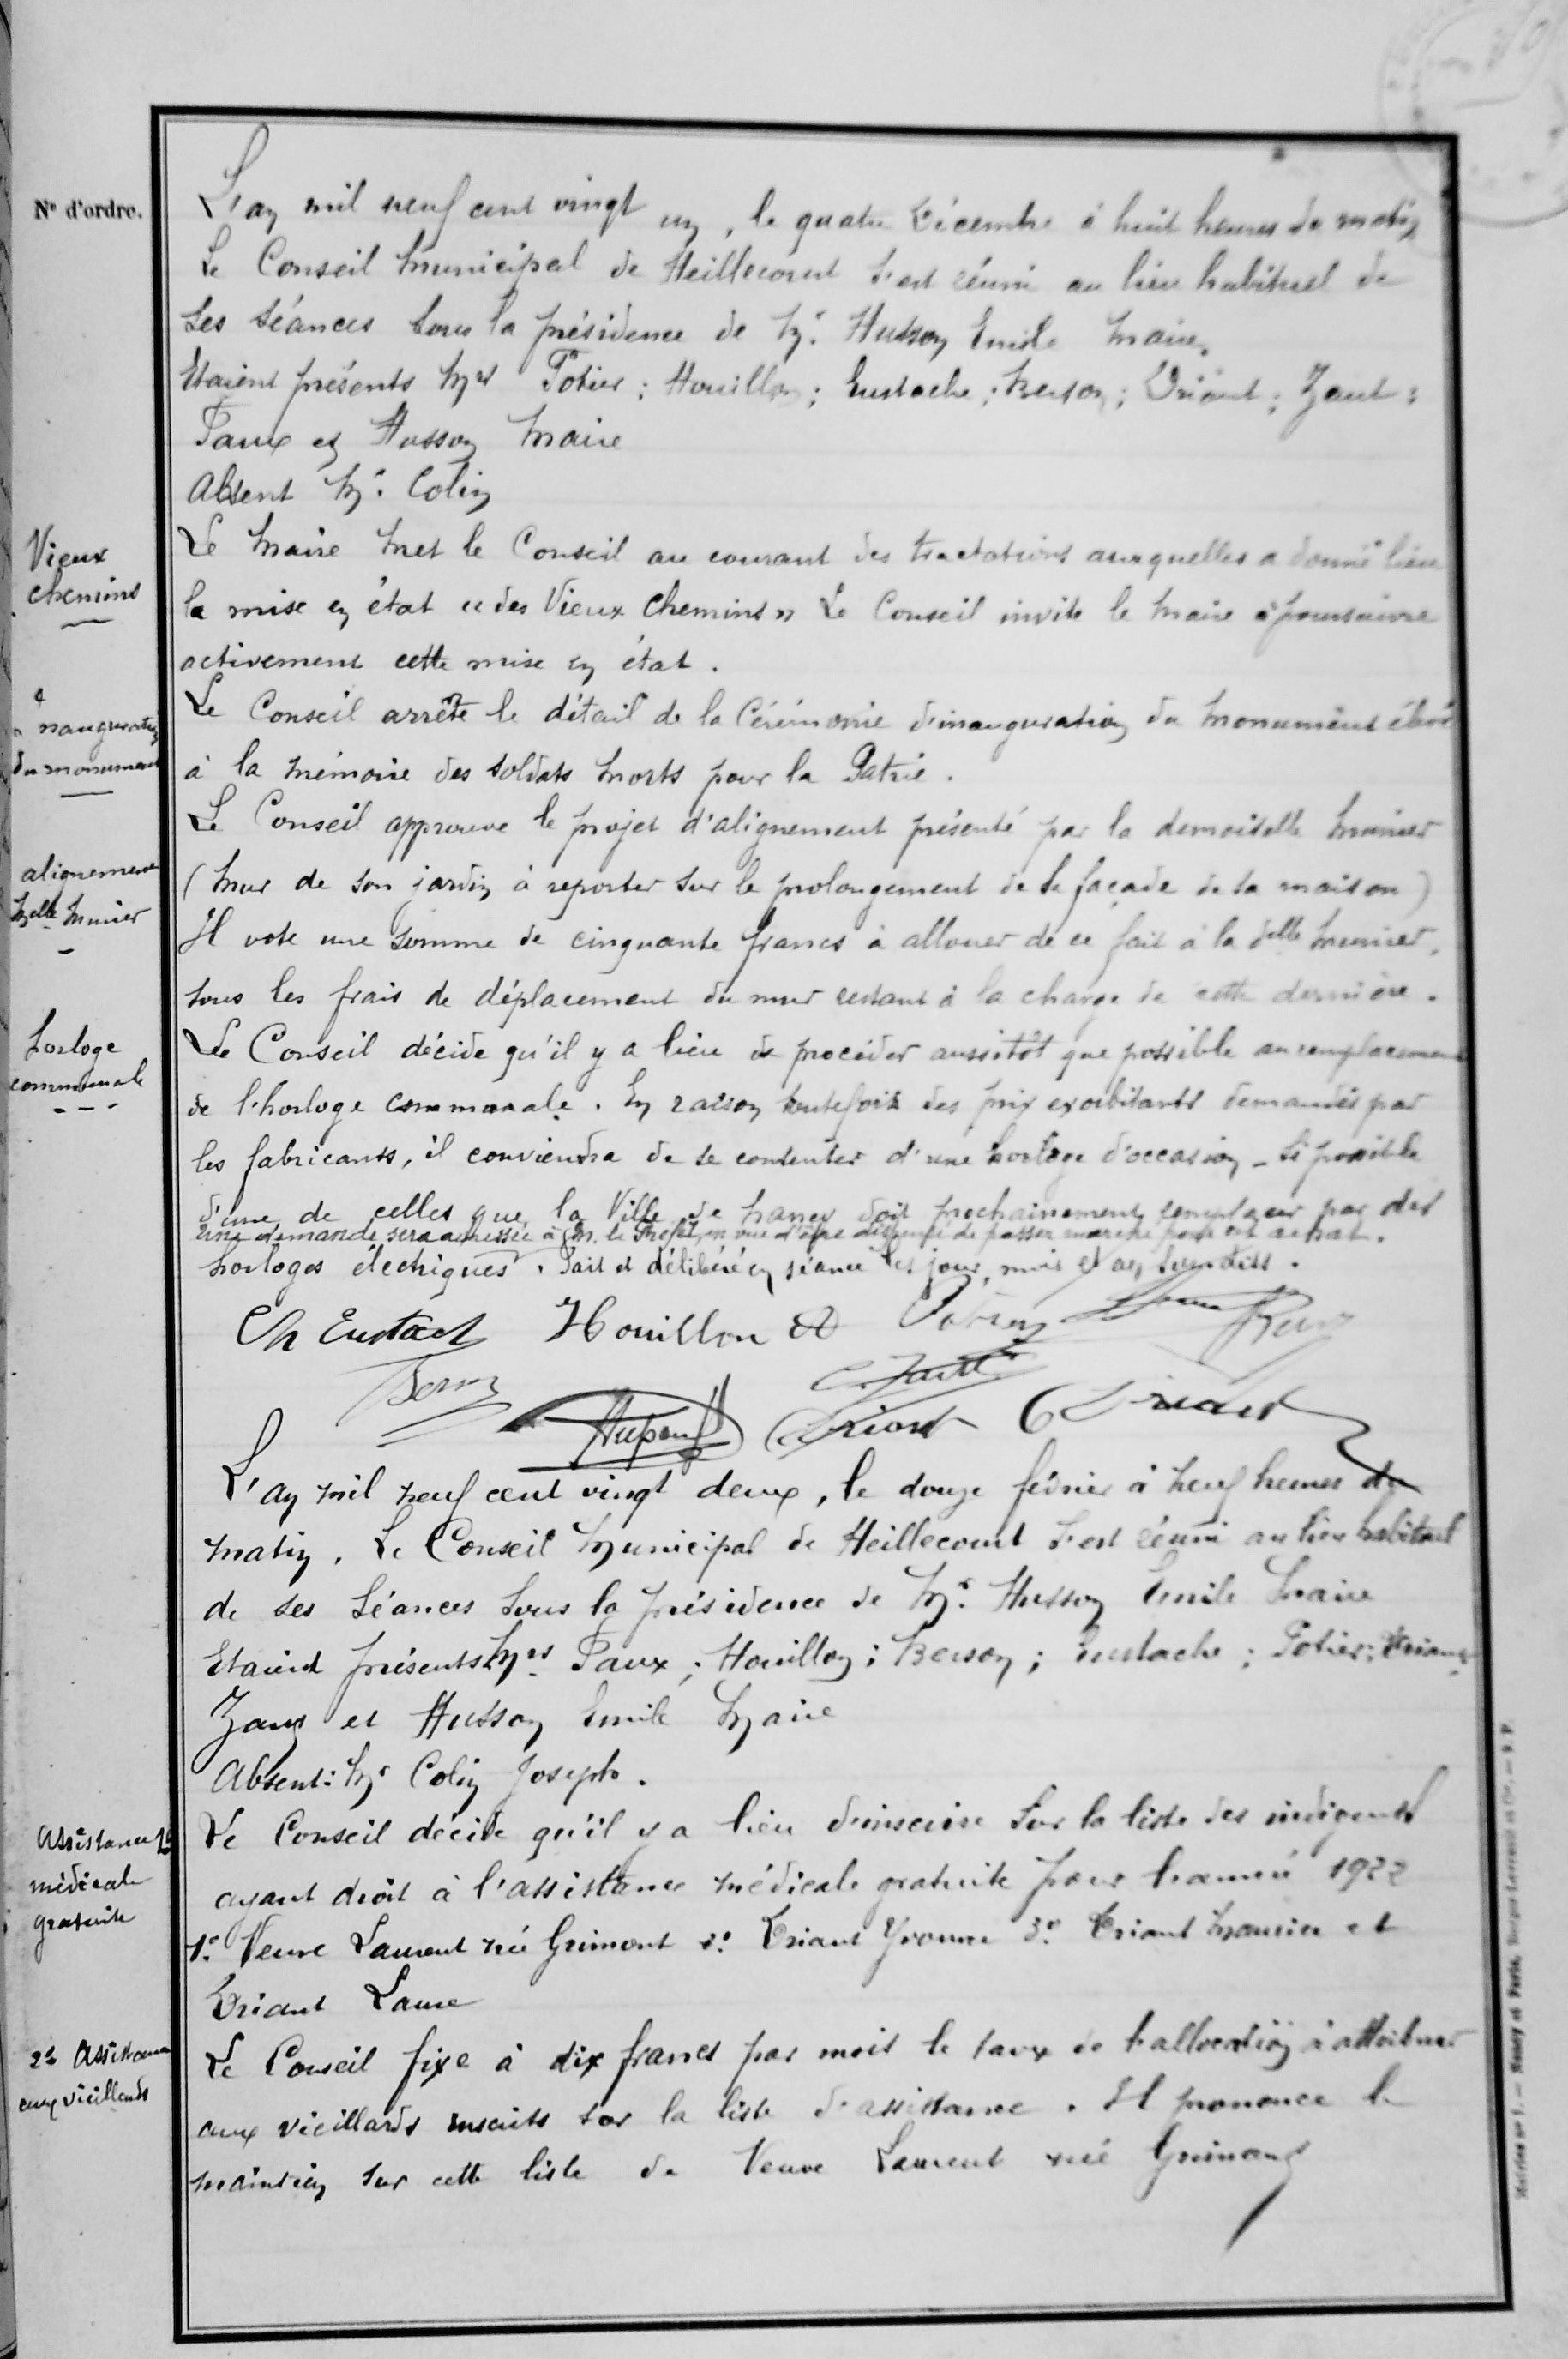 N° d'ordre.
L'an mil neuf cent vingt un, le quatre Décembre à huit heures du matin
Le Conseil Municipal de Heillecourt s'est réuni au lieu habituel de
ses séances sous la présidence de Mr. Husson Emile Maire.
Etaient présents Mrs Potier ; Houillon ; Eustache ; Berson ; Driant ; Zant ;
Paux et Husson Maire
Absent Mr. Colin
Vieux
chemins
Le Maire met le Conseil au courant des tractations auxquelles a donné lieu
la mise en état « des Vieux Chemins » Le Conseil invite le Maire à poursuivre
activement cette mise en état.
Inauguration
du monument
Le Conseil arrête le détail de la Cérémonie d'inauguration du Monument élevé
à la mémoire des soldats morts pour la Patrie.
alignement
Melle Munier
Le Conseil approuve le projet d'alignement présenté par la demoiselle Munier
(Mur de son jardin à reporter sur le prolongement de la façade de sa maison)
Il vote une somme de cinquante francs à allouer de ce fait à la delle Munier,
tous les frais de déplacement du mur restant à la charge de cette dernière.
horloge
communale
Le Conseil décide qu'il y a lieu de procéder aussitôt que possible au remplacement
de l'horloge communale. En raison toutefois des prix exorbitants demandés par
les fabricants, il conviendra de se contenter d'une horloge d'occasion - si possible
d'une de celles que la Ville de Nancy doit prochainement remplacer par des
Une demande sera adressée à M. le Préfet, en vue d'être dispensé de passer marché pour cet achat.
horloges électriques. Fait et délibéré en séance les jour, mois et an susdits.
Ch Eustach Houillon Potier
Berson
Zant
Husson Driant
L'an mil neuf cent vingt deux, le douze février à neuf heures du
matin. Le Conseil Municipal de Heillecourt s'est réuni au lieu habituel
de ses séances sous la présidence de Mr. Husson Emile Maire
Etaient présents Mrs. Paux ; Houillon ; Berson ; Eustache ; Potier ; Driant
Zant et Husson Emile Maire
Absent : Mr Colin Joseph.
Assistance
médicale
gratuite
Le Conseil décide qu'il y a lieu d'inscrire sur la liste des indigents
ayant droit à l'assistance médicale gratuite pour l'année 1922
1° Veuve Laurent née Grimont 2° Driant Yvonne 3° Driant Maurice et
Driant Laure
2° Assistance
aux vieillards
Le Conseil fixe à dix francs par mois le taux de l'allocation à attribuer
aux vieillards inscrits sur la liste d'assistance. Il prononce le
maintien sur cette liste de Veuve Laurent née Grimont